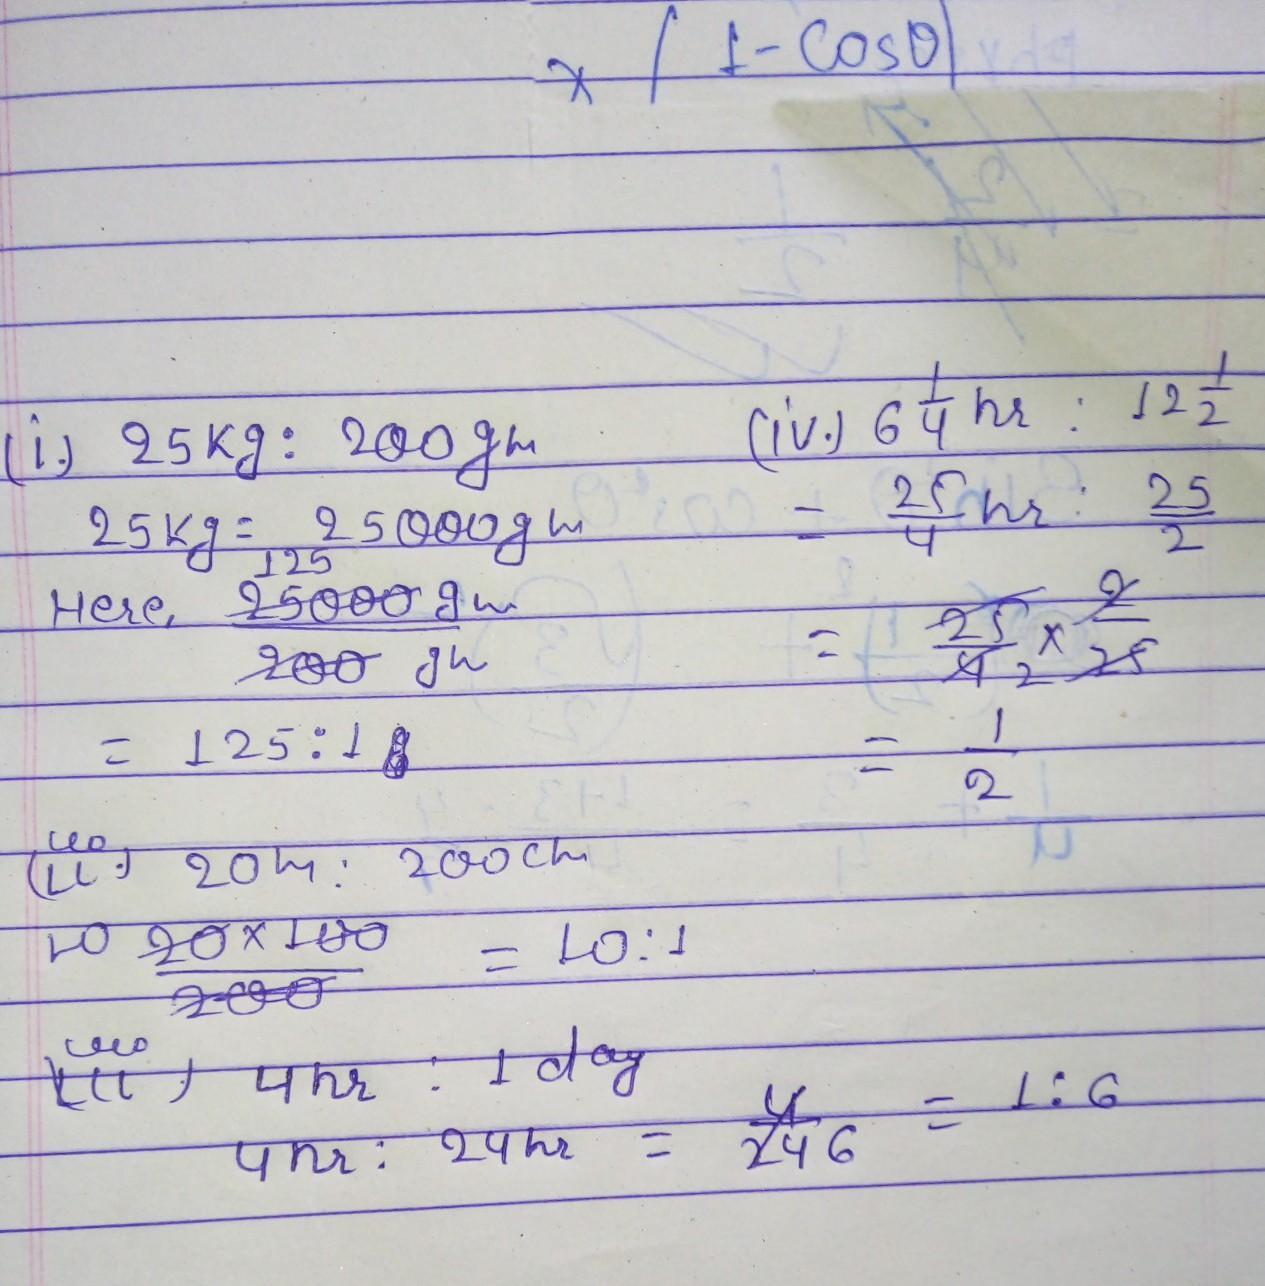 x | 1 - Cosθ |
(i.) 25Kg : 200gm
25Kg = 25000gm
125
Here, 25000 gm
200 gm
= 125 : 1
(ii.) 20m : 200cm
10 20 x 100 = 10 : 1
200
(iii) 4hr : 1 day
4hr : 24hr = 4/24 6 = 1 : 6
(iv.) 6 1/4 hr : 12 1/2
= 25/4 hr : 25/2
= 25/4 2 x 2/25
= 1/2